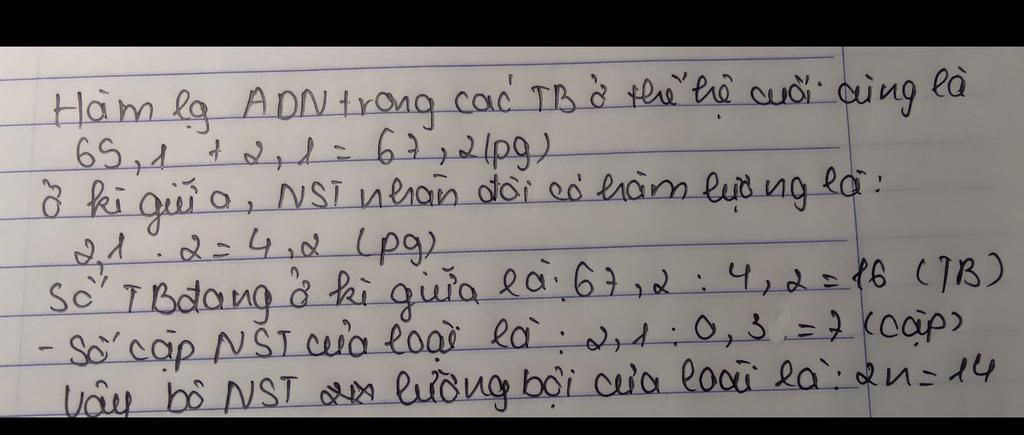 Hàm lg ADN trong các TB ở thế hệ cuối cùng là
65,1 + 2,1 = 67,2 (pg)
ở kì giữa, NST nhân đôi có hàm lượng là:
2,1 . 2 = 4,2 (pg)
Số TB đang ở kì giữa là: 67,2 : 4,2 = 16 (TB)
- Số cặp NST của loài là: 2,1 : 0,3 = 7 (cặp)
Vậy bộ NST lưỡng bội của loài là: 2n = 14